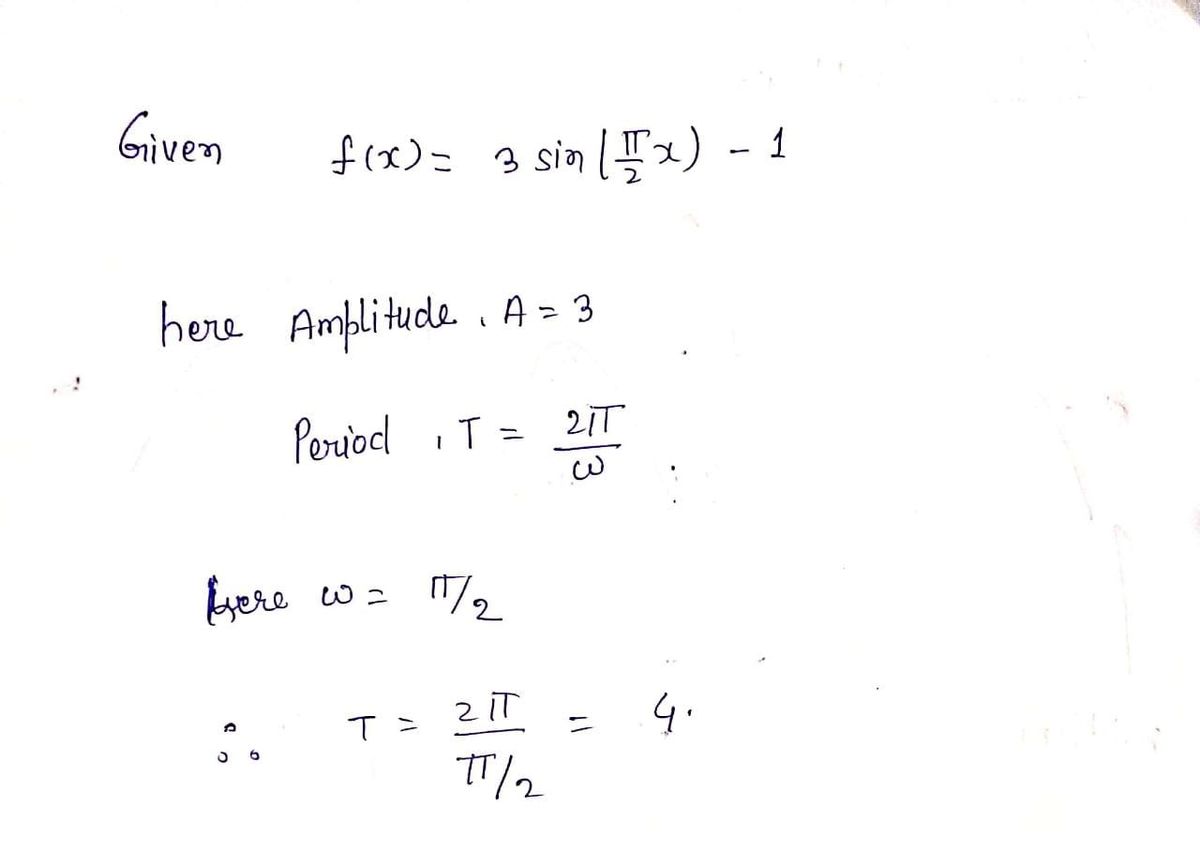 Given f(x) = 3 sin(π/2 x) - 1
here Amplitude, A = 3
Period, T = 2π/ω
here ω = π/2
∴ T = 2π/(π/2) = 4.